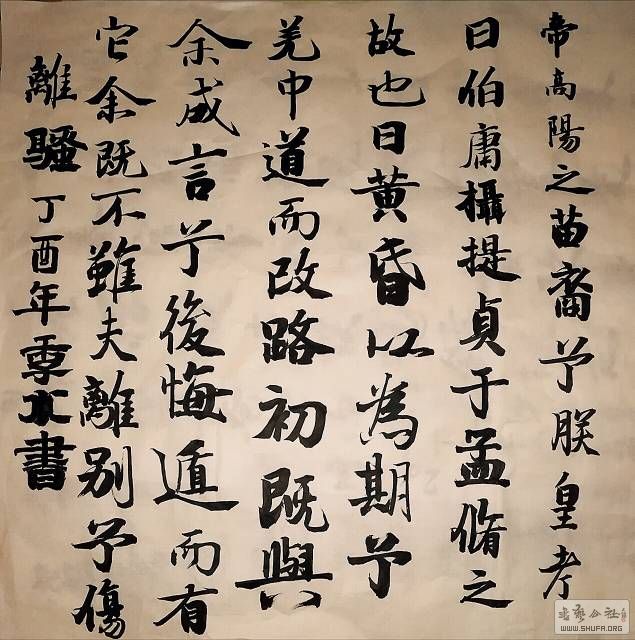 帝高陽之苗裔兮朕皇考
曰伯庸攝提貞于孟脩之
故也曰黃昏以為期兮
羌中道而改路初既與
余成言兮後悔遁而有
它余既不雖夫離別兮傷
離騷丁酉年書
書藝公社
WWW.SHUFA.ORG